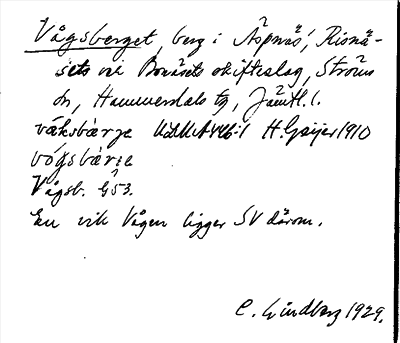 Vågsberget, berg i Äspnäs, Risnä-
sets och Bonäsets skifteslag, Ströms
sn, Hammerdals tg, Jämtl. l.
våksbärje H. Geijer 1910
vógsbärje
Vågsb. G53.
En vik Vågen ligger SV därom.
C. Lindberg 1929.